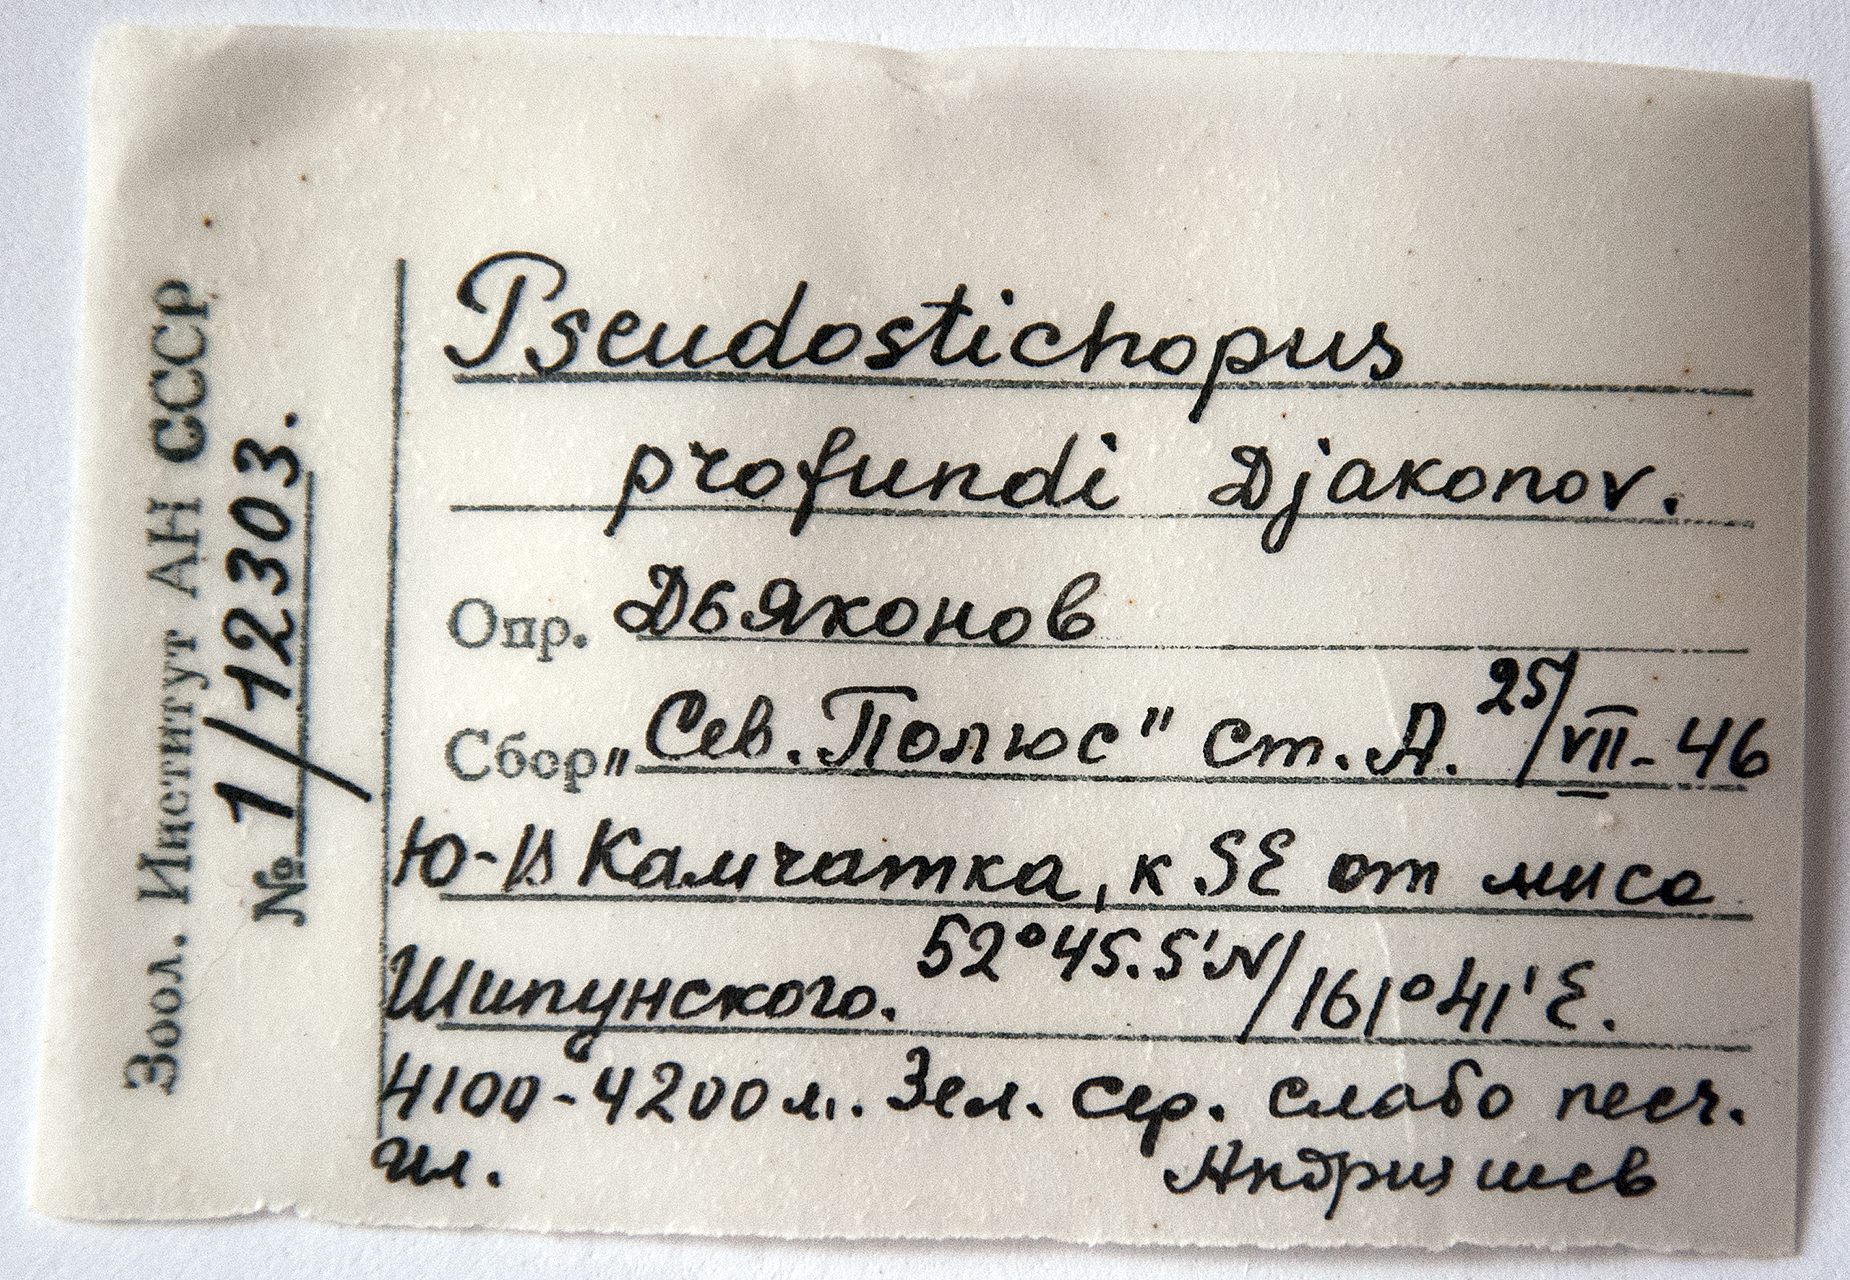 Зоол. Институт АН СССР
№ 1/12303.
Pseudostichopus
profundi Djakonov.
Опр. Дьяконов
Сбор „Сев. Полюс" ст. А. 25/VII-46
Ю-В Камчатка, к SE от мыса
Шипунского. 52°45.5'N/161°41'E.
4100-4200 м. Зел. сер. слабо песч.
ил. Андрияшев